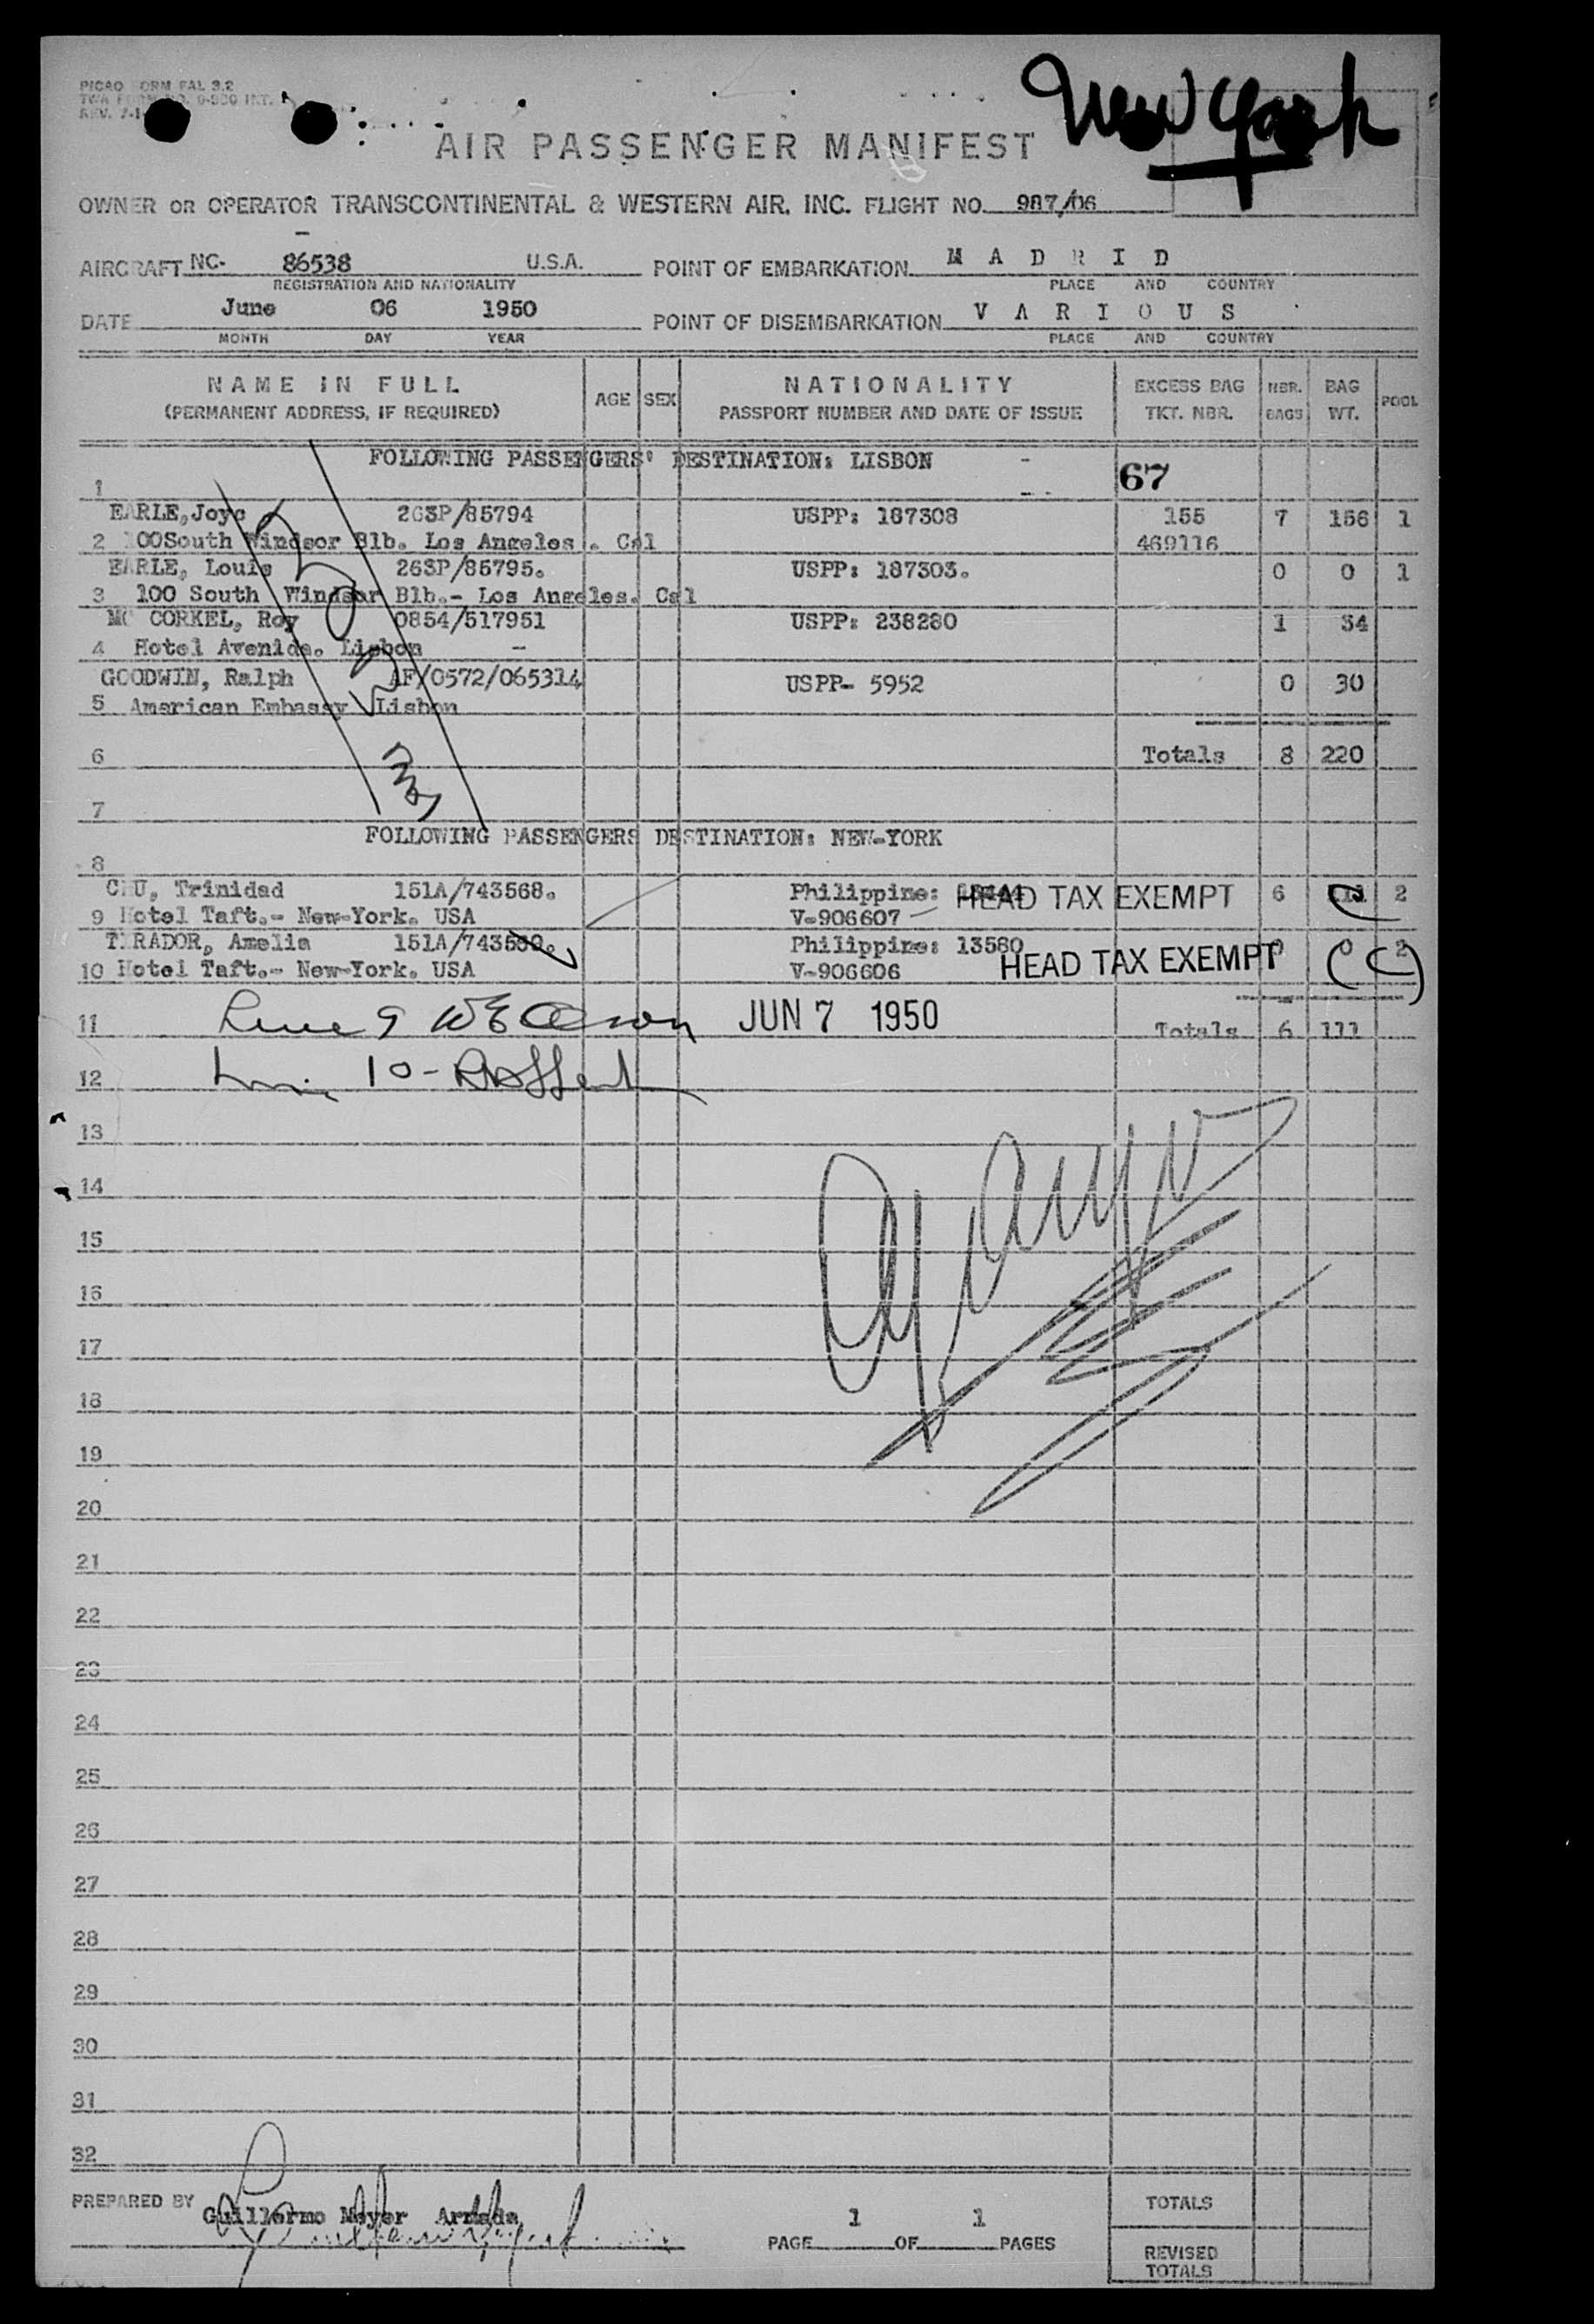 PICAO FORM FAL 3.2
TWA FORM NO. INT.
REV.
New York
AIR PASSENGER MANIFEST
OWNER OR OPERATOR TRANSCONTINENTAL & WESTERN AIR, INC. FLIGHT NO. 987/06
AIRCRAFT NC- 86538 U.S.A. POINT OF EMBARKATION M A D R I D
REGISTRATION AND NATIONALITY PLACE AND COUNTRY
DATE June 06 1950 POINT OF DISEMBARKATION V A R I O U S
MONTH DAY YEAR PLACE AND COUNTRY
NAME IN FULL AGE SEX NATIONALITY EXCESS BAG NBR. BAG POOL
(PERMANENT ADDRESS, IF REQUIRED) PASSPORT NUMBER AND DATE OF ISSUE TKT. NBR. BAGS WT.
FOLLOWING PASSENGERS' DESTINATION: LISBON -
1 67
EARLE,Joyc 263P/85794 USPP: 187308 155 7 156 1
2 100South Windsor Blb. Los Angeles . Cal 469116
EARLE, Louis 263P/85795. USPP: 187303. 0 0 1
3 100 South Windsor Blb.- Los Angeles. Cal
MC CORKEL, Roy 0854/517951 USPP: 238280 1 34
4 Hotel Avenida. Lisbon -
GOODWIN, Ralph AF/0572/065314 USPP- 5952 0 30
5 American Embassy Lisbon
6 Totals 8 220
7
FOLLOWING PASSENGERS DESTINATION: NEW-YORK
8
CHU, Trinidad 151A/743568. Philippine: HEAD TAX EXEMPT 6 111 2
9 Hotel Taft.- New-York. USA V-906607
TIRADOR, Amelia 151A/743 Philippine: 13580 0 0 2
10 Hotel Taft.- New-York. USA V-906606 HEAD TAX EXEMPT
11 JUN 7 1950 Totals 6 111
12
13
14
15
16
17
18
19
20
21
22
23
24
25
26
27
28
29
30
31
32
PREPARED BY Guillermo Meyer Armada
PAGE 1 OF 1 PAGES
TOTALS
REVISED
TOTALS